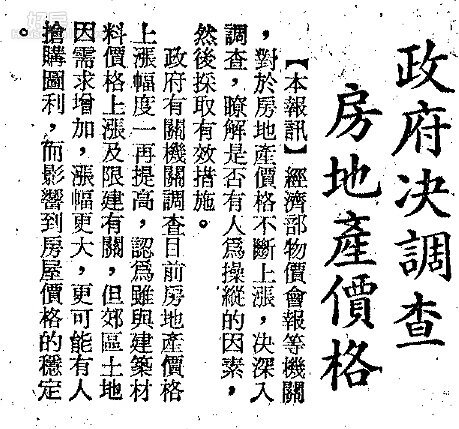 政府决調查
房地產價格
【本報訊】經濟部物價會報等機關
，對於房地產價格不斷上漲，决深入
調查，瞭解是否有人爲操縱的因素，
然後採取有效措施。
政府有關機關調查目前房地產價格
上漲幅度一再提高，認爲雖與建築材
料價格上漲及限建有關，但郊區土地
因需求增加，漲幅更大，更可能有人
搶購圖利，而影響到房屋價格的穩定
。